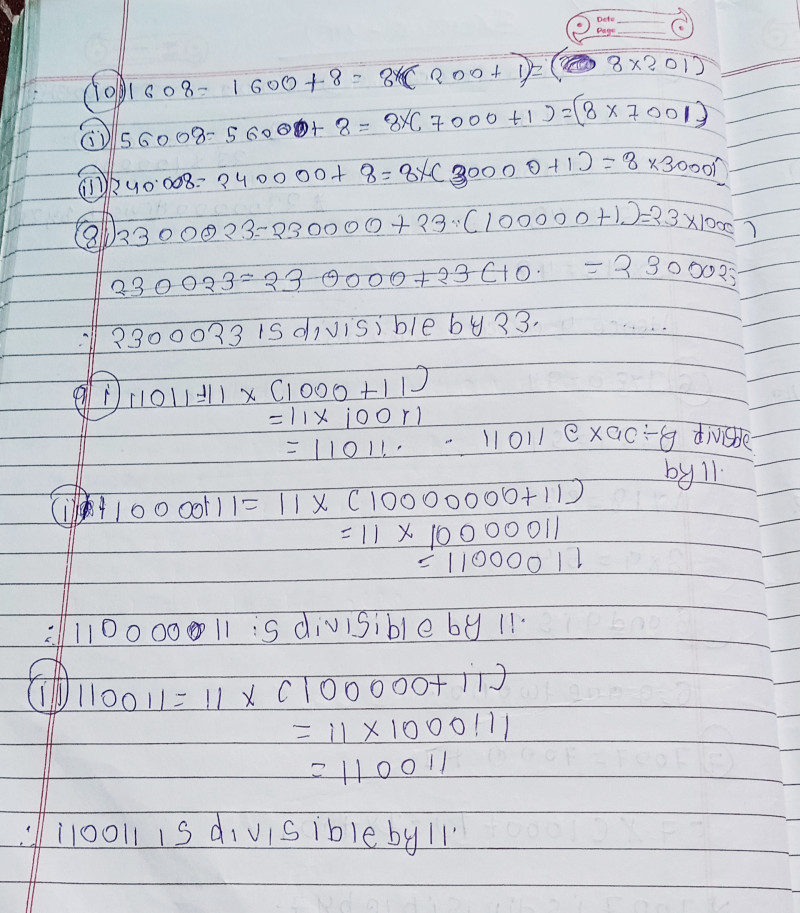 Date
Page
(i) 1608 = 1600 + 8 = 8x( 200 + 1) = ( 8 x 201(
(ii) 56008 = 56000 + 8 = 8x( 7000 + 1) = (8 x 7001)
(iii) 240.008 = 240000 + 8 = 8x( 30000 + 1) = 8 x 30001
(8) 2300023 = 230000 + 23 . (100000 + 1) = 23 x 1000
230023 = 23 0000 + 23 (10. = 2300023
∴ 2300023 is divisible by 23.
9 (i) 11011 = 11 x (1000 + 11)
= 11 x 1001
= 11011 . . 11011
divisible
by 11.
(ii) 1100001 = 11 x (10000000 + 11)
= 11 x 10000011
= 11000011
∴ 11000001 is divisible by 11.
(iii) 110011 = 11 x (100000 + 11)
= 11 x 1000111
= 110011
∴ 110011 is divisible by 11.